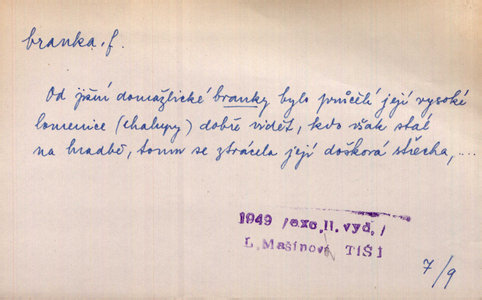 branka, f.
Od jižní domažlické branky bylo průčelí její vysoké
lomenice (chalupy) dobře vidět, kdo však stál
na hradbě, tomu se ztrácela její došková střecha, ...
1949 /exc.II.vyd./
L. Mašínová TIŠI
7/9